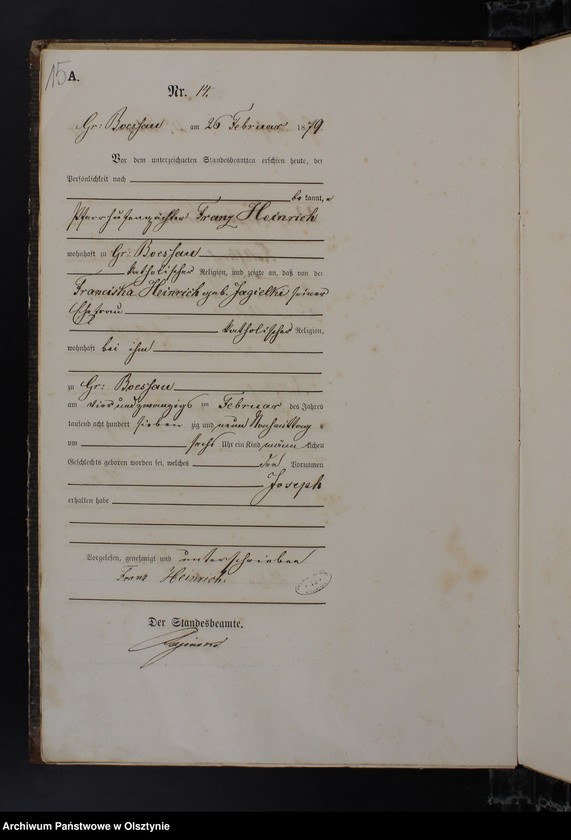 15
A.
Nr. 14.
Gr: Boessau am 26 Februar 1879
Vor dem unterzeichneten Standesbeamten erschien heute, der
Persönlichkeit nach
be kannt,
Pfarrhufenpächter Franz Heinrich
wohnhaft zu Gr: Boessau
katholischer Religion, und zeigte an, daß von der
Franciska Heinrich geb. Jagielki seiner
Ehefrau
katholischer Religion,
wohnhaft bei ihm
zu Gr: Boessau
am vierundzwanzigs ten Februar des Jahres
tausend acht hundert sieben zig und neun Nachmittag s
um sechs Uhr ein Kind männ lichen
Geschlechts geboren worden sei, welches den Vornamen
Joseph
erhalten habe
Vorgelesen, genehmigt und unterschrieben
Franz Heinrich.
Der Standesbeamte.
Archiwum Państwowe w Olsztynie